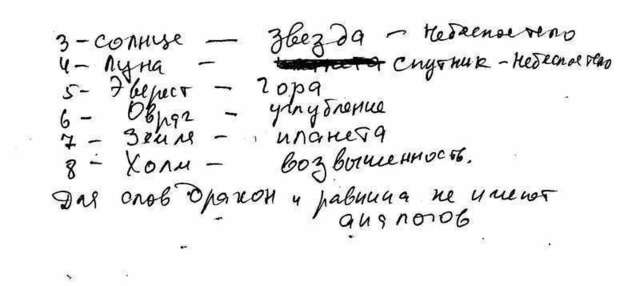 3 - солнце — звезда - небесное тело
4 - Луна - спутник - небесное тело
5 - Эверест - гора
6 - Овраг - углубление
7 - Земля - планета
8 - Холм - возвышенность.
Для слов дракон и равнина не имеют
аналогов